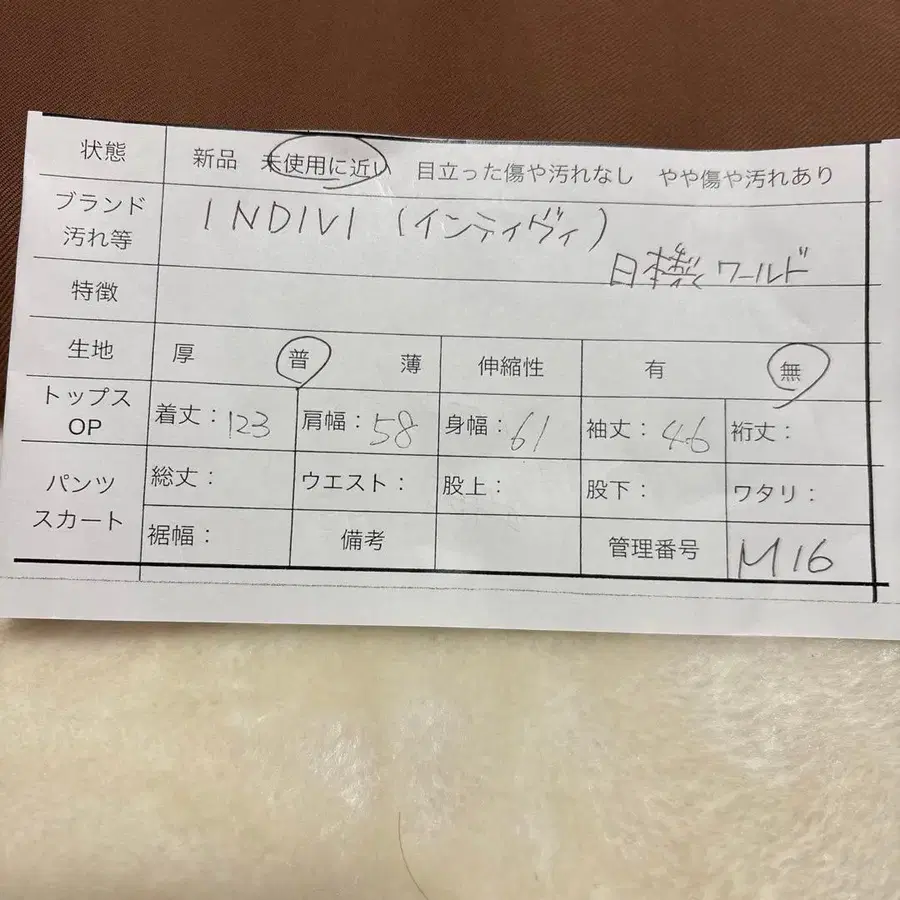 状態 新品 未使用に近い 目立った傷や汚れなし やや傷や汚れあり
ブランド 汚れ等 INDIVI (インティヴィ)
日本製 ワールド
特徴
生地 厚 普 薄 伸縮性 有 無
トップス OP 着丈：123 肩幅：58 身幅：61 袖丈：46 裄丈：
パンツ スカート 総丈： ウエスト： 股上： 股下： ワタリ：
裾幅： 備考 管理番号 M16